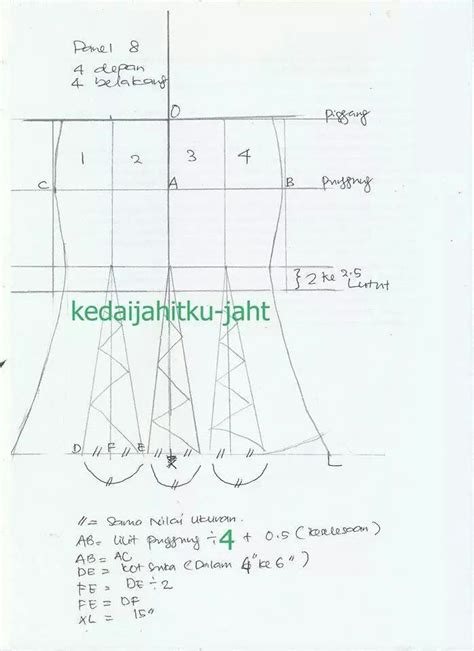 Panel 8
4 depan
4 belakang
O
Pinggang
1 2 3 4
C A B Punggung
} 2 ke 2.5
Lutut
kedaijahitku-jaht
D // F // E // X // // // L
// = Sama Nilai Ukuran.
AB = Lilit punggung ÷ 4 + 0.5 (keselesaan)
AB = AC
DE = ikot suka (Dalam 4" ke 6")
FE = DE ÷ 2
FE = DF
XL = 15"